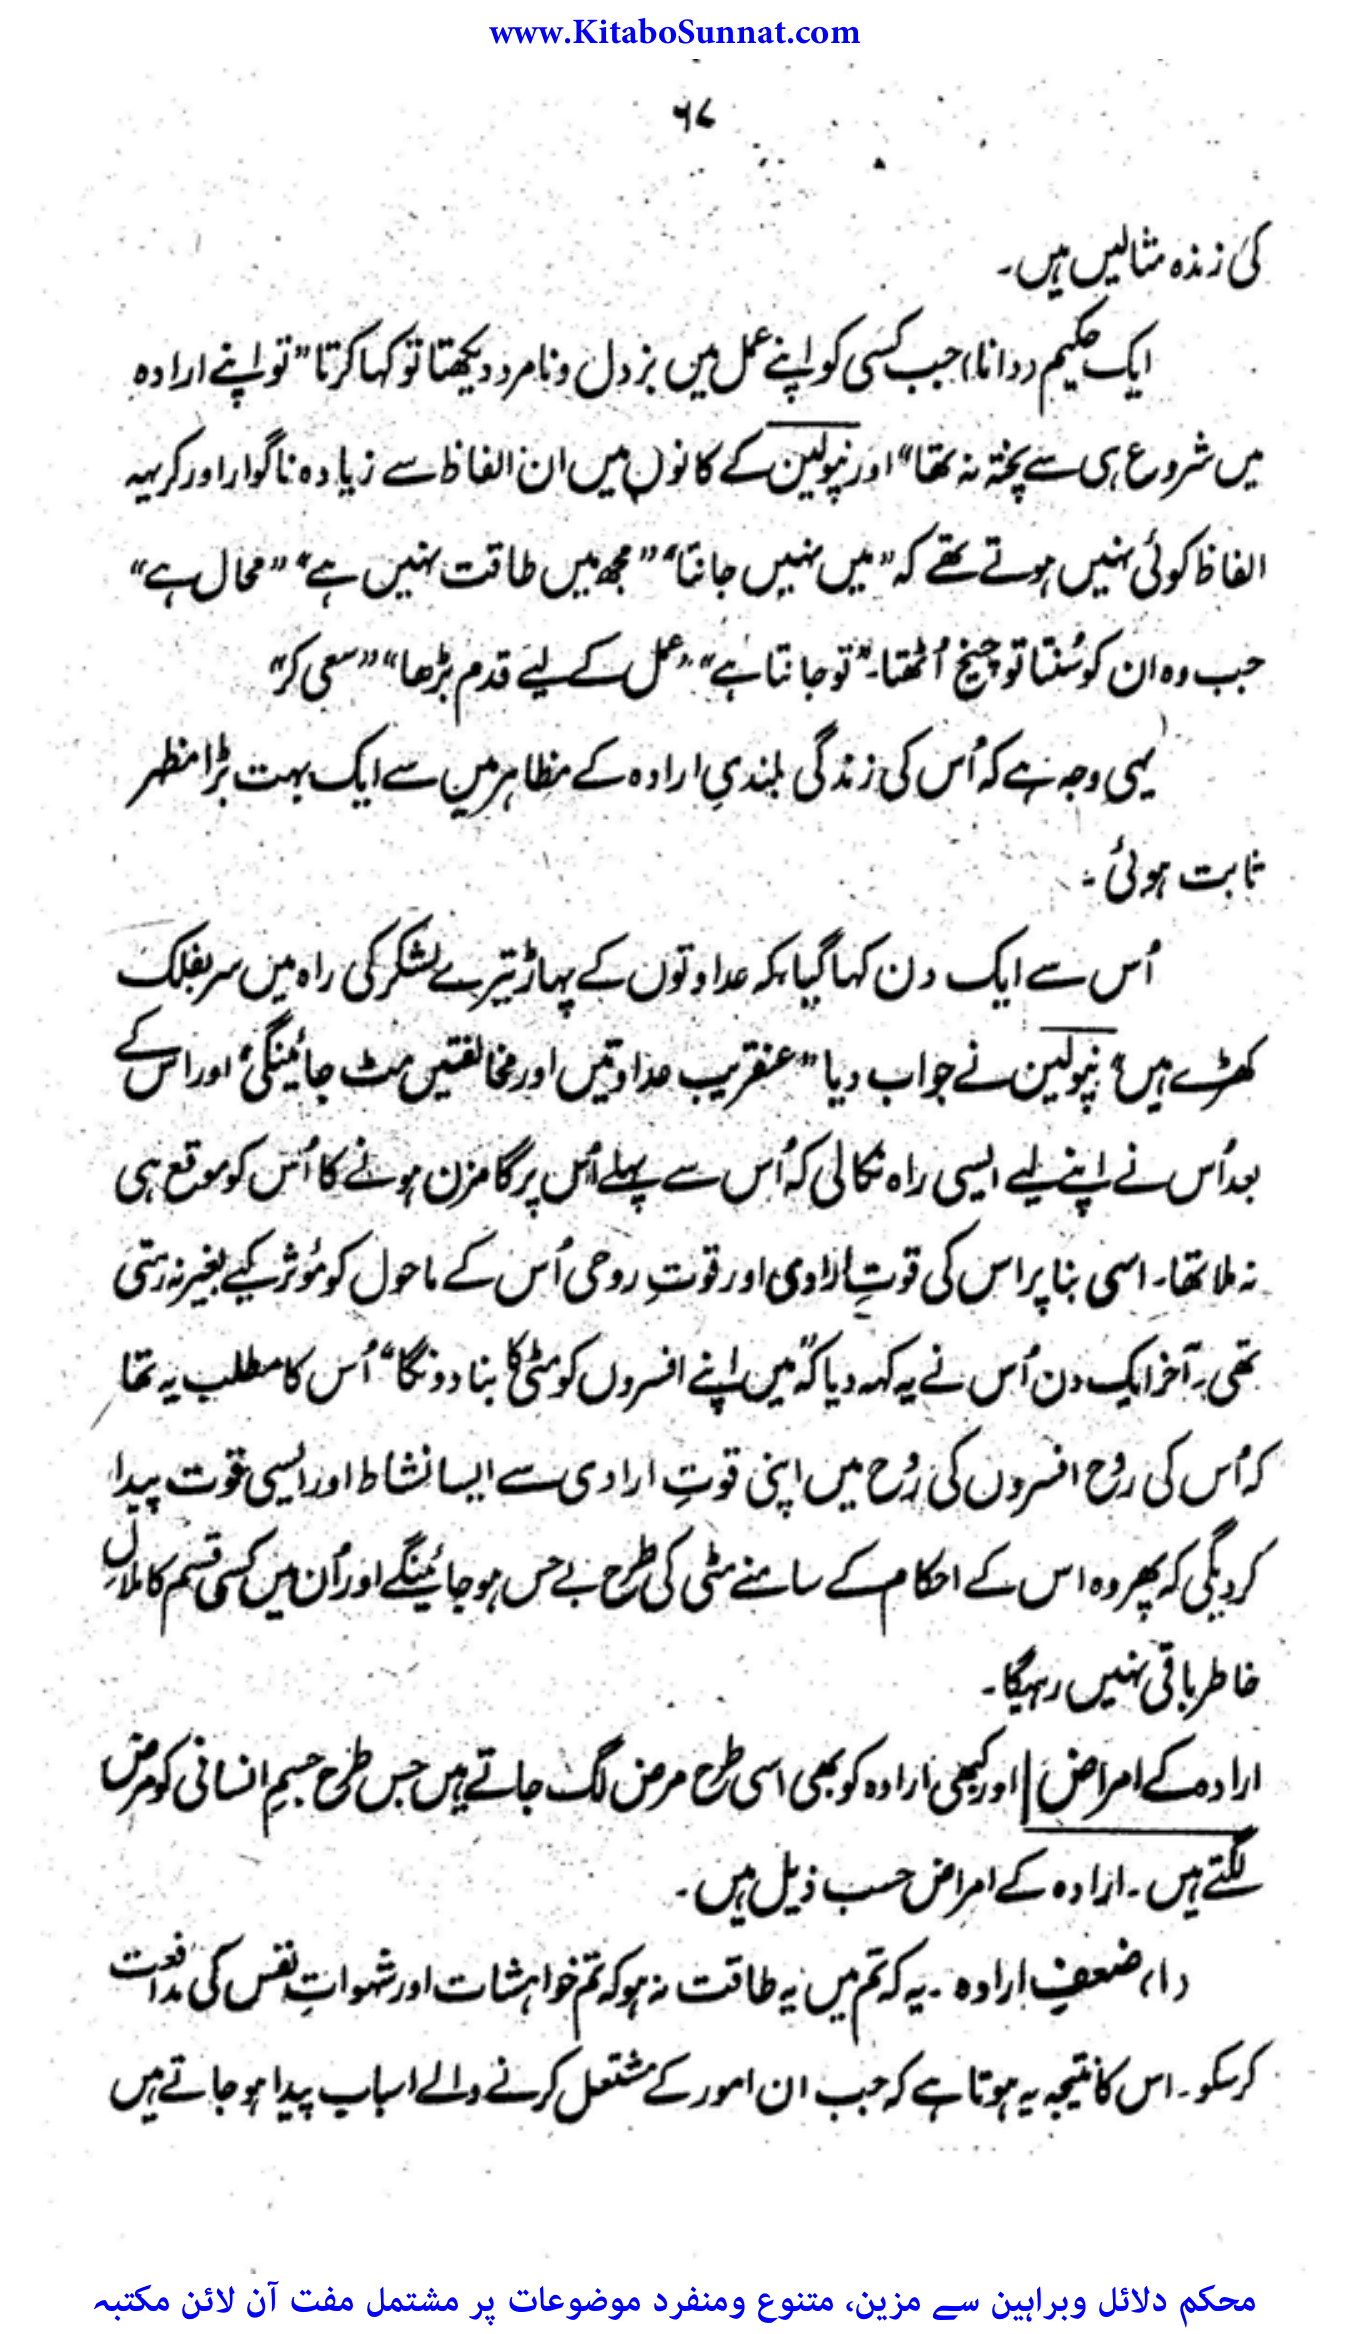 www.KitaboSunnat.com
۶۷
کی زندہ مثالیں ہیں۔
ایک حکیم (دانا) جب کسی کو اپنے عمل میں بزدل و نامرد دیکھتا تو کہا کرتا "تو اپنے ارادہ
میں شروع ہی سے پختہ نہ تھا" اور نپولین کے کانوں میں ان الفاظ سے زیادہ ناگوار اور کریہہ
الفاظ کوئی نہیں ہوتے تھے کہ "میں نہیں جانتا" "مجھ میں طاقت نہیں ہے" "محال ہے"
جب وہ ان کو سُنتا تو چیخ اُٹھتا۔ "تو جانتا ہے" "عمل کے لیے قدم بڑھا" "سعی کر"
یہی وجہ ہے کہ اُس کی زندگی بلندیِ ارادہ کے مظاہر میں سے ایک بہت بڑا مظہر
ثابت ہوئی۔
اُس سے ایک دن کہا گیا کہ عداوتوں کے پہاڑ تیرے لشکر کی راہ میں سر بفلک
کھڑے ہیں، نپولین نے جواب دیا "عنقریب عداوتیں اور مخالفتیں مٹ جائینگی" اور اس کے
بعد اُس نے اپنے لیے ایسی راہ نکالی کہ اُس سے پہلے اُس پر گامزن ہونے کا اُس کو موقع ہی
نہ ملا تھا۔ اسی بنا پر اس کی قوتِ ارادی اور قوتِ روحی اُس کے ماحول کو مؤثر کیے بغیر نہ رہتی
تھی۔ آخر ایک دن اُس نے یہ کہہ دیا کہ "میں اپنے افسروں کو مٹی کا بنا دونگا" اُس کا مطلب یہ تھا
کہ اُس کی رُوح افسروں کی رُوح میں اپنی قوتِ ارادی سے ایسا نشاط اور ایسی قوت پیدا
کردیگی کہ پھر وہ اس کے احکام کے سامنے مٹی کی طرح بے حس ہوجائینگے اور اُن میں کسی قسم کا ملالِ
خاطر باقی نہیں رہیگا۔
ارادہ کے امراض | اور کبھی ارادہ کو بھی اسی طرح مرض لگ جاتے ہیں جس طرح جسمِ انسانی کو مرض
لگتے ہیں۔ ارادہ کے امراض حسب ذیل ہیں۔
(۱) ضعفِ ارادہ۔ یہ کہ تم میں یہ طاقت نہ ہو کہ تم خواہشات اور شہواتِ نفس کی مدافعت
کرسکو۔ اس کا نتیجہ یہ ہوتا ہے کہ جب ان امور کے مشتعل کرنے والے اسباب پیدا ہوجاتے ہیں
محکم دلائل وبراہین سے مزین، متنوع ومنفرد موضوعات پر مشتمل مفت آن لائن مکتبہ